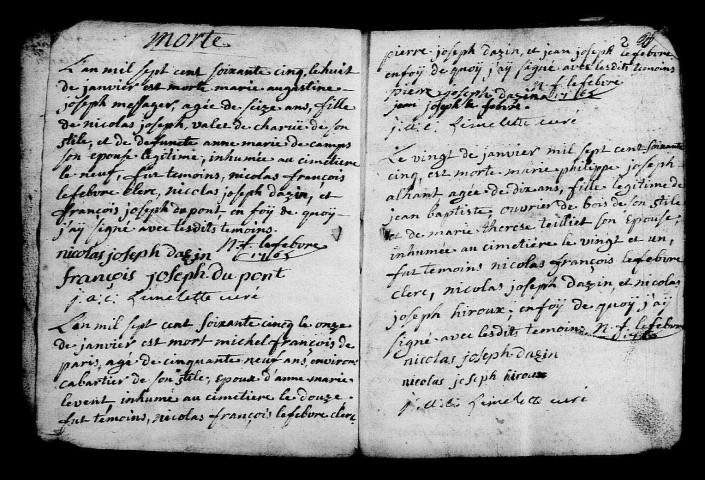 morte
L'an mil sept cent soixante cinq, le huit
de janvier est morte marie augustine
joseph messager, agée de seize ans, fille
de nicolas joseph, valet de charüe de son
stile, et de defuncte anne marie de camps
son epouse legitime, inhumée au cimetiere
le neuf, fut temoins, nicolas françois
lefebvre clerc, nicolas joseph dazin, et
françois joseph dupont, en foÿ de quoÿ
j'aÿ signé avec lesdits temoins.
nicolas joseph dazin N. f. lefebvre
1765
françois joseph du pont
curé
L'an mil sept cent soixante cinq le onze
de janvier est mort michel françois de
paris, agé de cinquante neuf ans, environ
cabartier de son stile, epoux d'anne marie
levent inhumé au cimetiere le douze
fut temoins, nicolas françois lefebvre clerc
2
pierre joseph dazin, et jean joseph lefebvre
en foÿ de quoÿ j'aÿ signé avec lesdits temoins
pierre joseph dazin N. f. lefebvre
1765
jean joseph le febvre
curé
Le vingt de janvier mil sept cent soixante
cinq, est morte marie philippe joseph
alhant agée de dix ans, fille legitime de
jean baptiste, ouvrier de bois de son stile
et de marie therese teilliet son epouse,
inhumée au cimetiere le vingt et un,
fut temoins nicolas françois lefebvre
clerc, nicolas joseph dazin, et nicolas
joseph hiroux, en foÿ de quoÿ j'aÿ
signé avec lesdits temoins N. f. lefebvre
1765
nicolas joseph dazin
nicolas joseph hiroux
curé